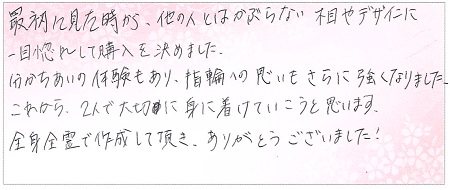 最初に見た時から、他の人とはかぶらない木目やデザインに
一目惚れして購入を決めました。
分かちあいの体験もあり、指輪への思いもさらに強くなりました。
これから、2人で大切に身に着けていこうと思います。
全身全霊で作成して頂き、ありがとうございました!